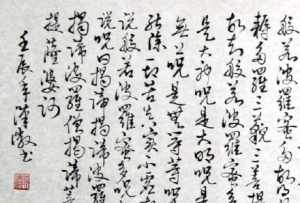 般若波羅蜜多故得
耨多羅三藐三菩提
故知般若波羅蜜多
是大神咒是大明咒是
無上咒是無等等咒是
能除一切苦真實不虛故
說般若波羅蜜多咒即
說咒曰揭諦揭諦波羅
揭諦波羅僧揭諦菩
提薩婆訶
壬辰年 書